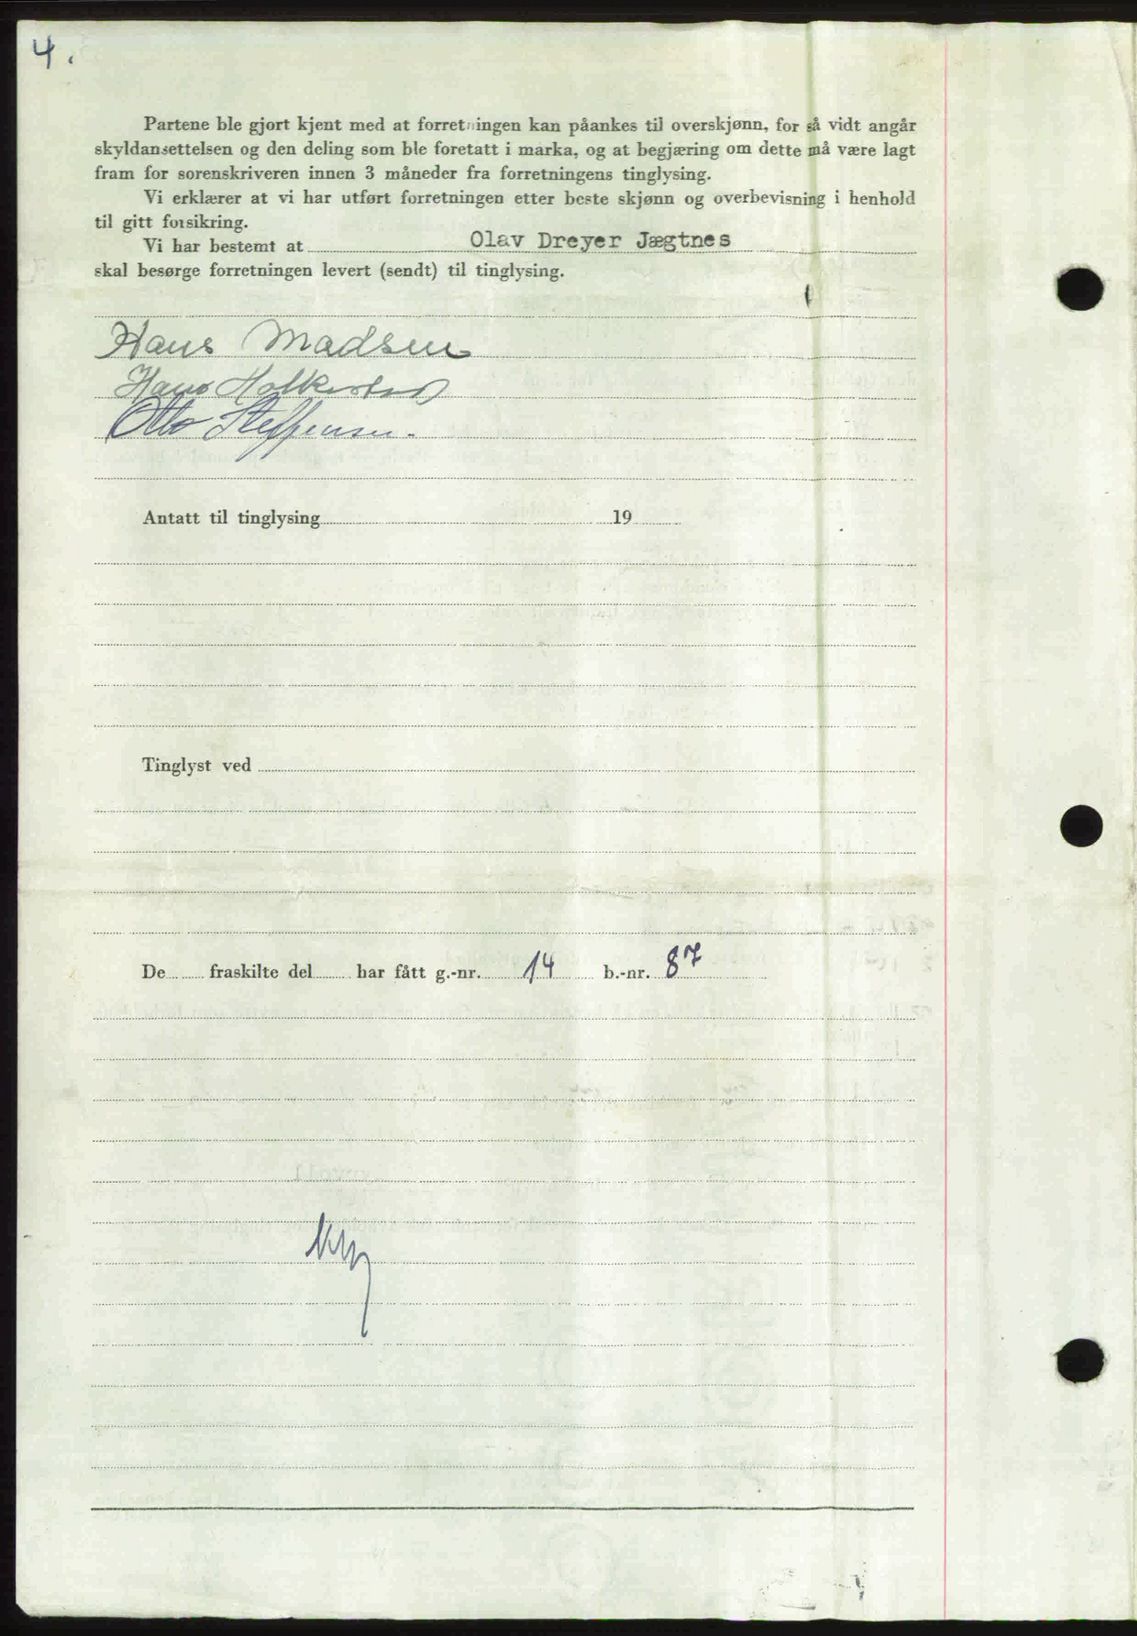 4.
Partene ble gjort kjent med at forretningen kan påankes til overskjønn, for så vidt angår
skyldansettelsen og den deling som ble foretatt i marka, og at begjæring om dette må være lagt
fram for sorenskriveren innen 3 måneder fra forretningens tinglysing.
Vi erklærer at vi har utført forretningen etter beste skjønn og overbevisning i henhold
til gitt forsikring.
Vi har bestemt at Olav Dreyer Jægtnes
skal besørge forretningen levert (sendt) til tinglysing.
Hans Madsen
Hans
Otto Steffensen.
Antatt til tinglysing 19
Tinglyst ved
De fraskilte del har fått g.-nr. 14 b.-nr. 87